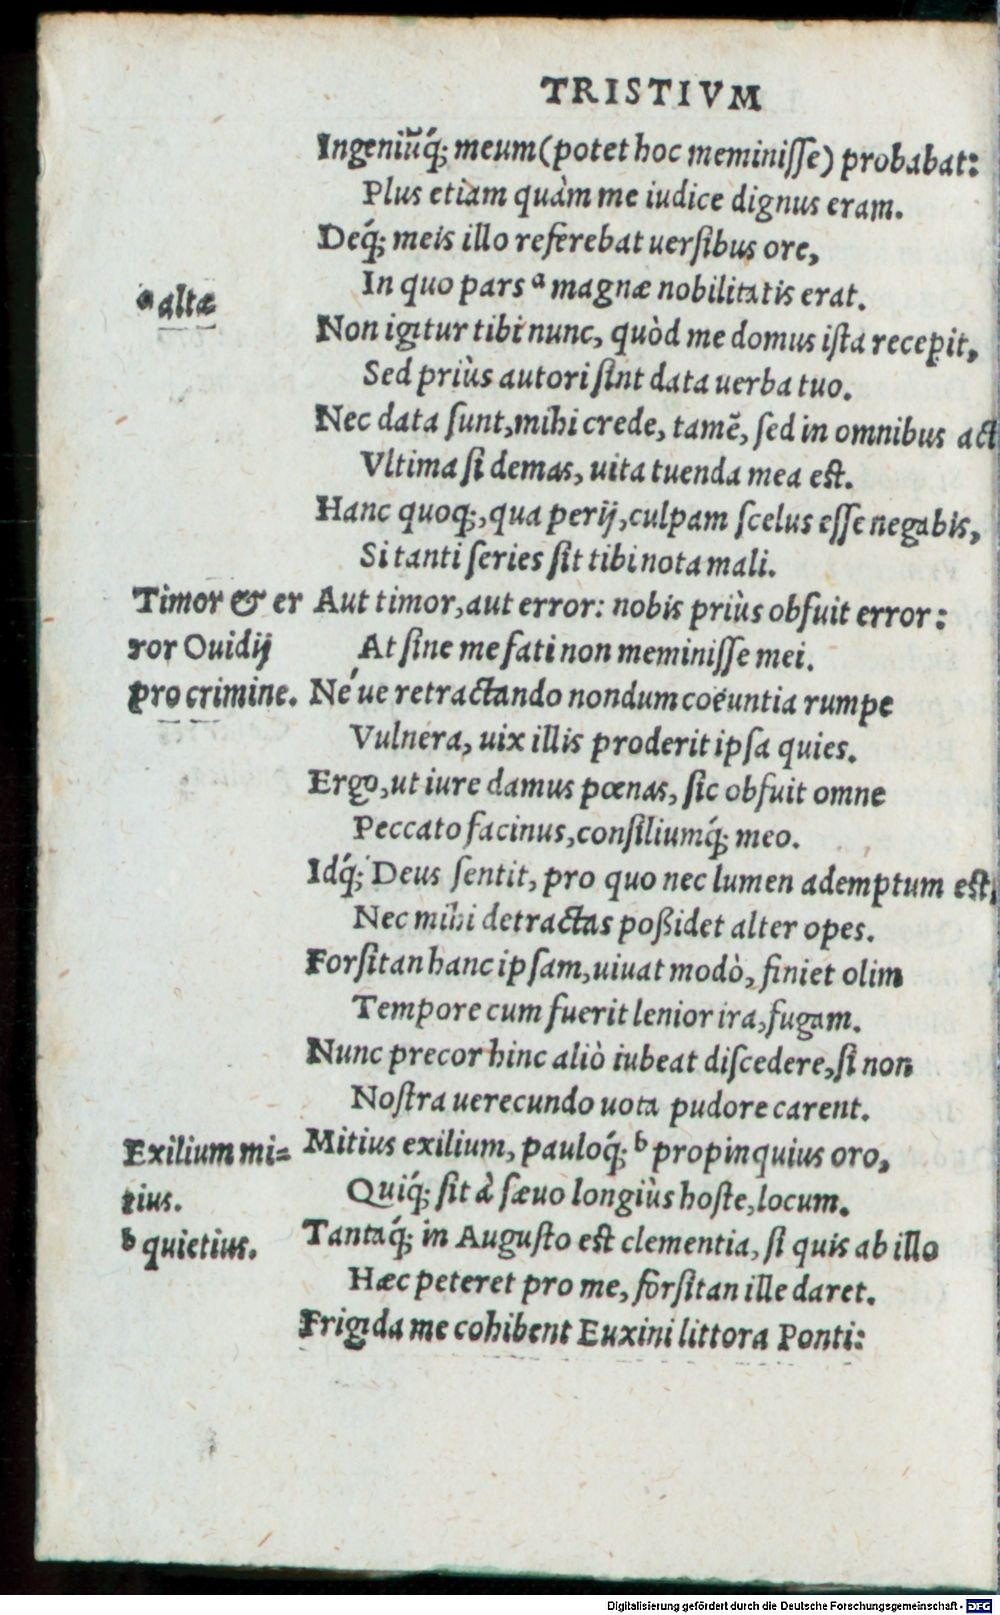 TRISTIVM
Ingeniũq́; meum (potet hoc meminiſſe) probabat:
Plus etiam quàm me iudice dignus eram.
Deq́; meis illo referebat uerſibus ore,
In quo pars ᵃ magnæ nobilitatis erat.
ᵃ altæ
Non igitur tibi nunc, quòd me domus iſta recepit,
Sed priùs autori ſint data uerba tuo.
Nec data ſunt, mihi crede, tamẽ, ſed in omnibus act
Vltima ſi demas, uita tuenda mea eſt.
Hanc quoq;, qua perij, culpam ſcelus eſſe negabis,
Si tanti ſeries ſit tibi nota mali.
Timor & er
ror Ouidij
pro crimine.
Aut timor, aut error: nobis priùs obfuit error:
At ſine me fati non meminiſſe mei.
Né ue retractando nondum coëuntia rumpe
Vulnera, uix illis proderit ipſa quies.
Ergo, ut iure damus pœnas, ſic obfuit omne
Peccato facinus, conſiliumq́; meo.
Idq́; Deus ſentit, pro quo nec lumen ademptum eſt,
Nec mihi detractas poßidet alter opes.
Forſitan hanc ipſam, uiuat modò, finiet olim
Tempore cum fuerit lenior ira, fugam.
Nunc precor hinc aliò iubeat diſcedere, ſi non
Noſtra uerecundo uota pudore carent.
Exilium mi=
tius.
ᵇ quietius.
Mitius exilium, pauloq́; ᵇ propinquius oro,
Quiq́; ſit à ſæuo longiùs hoſte, locum.
Tantaq́; in Auguſto eſt clementia, ſi quis ab illo
Hæc peteret pro me, forſitan ille daret.
Frigida me cohibent Euxini littora Ponti:
Digitalisierung gefördert durch die Deutsche Forschungsgemeinschaft - DFG